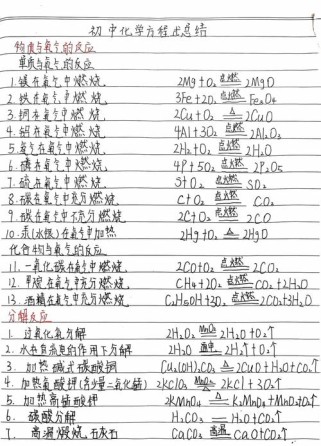 初中化学方程式总结
物质与氧气的反应
单质与氧气的反应
1.镁在氧气中燃烧, 2Mg+O₂ 点燃 2MgO
2.铁在氧气中燃烧, 3Fe+2O₂ 点燃 Fe₃O₄
3.铜在氧气中燃烧, 2Cu+O₂ △ 2CuO
4.铝在氧气中燃烧, 4Al+3O₂ 点燃 2Al₂O₃
5.氢气在氧气中燃烧, 2H₂+O₂ 点燃 2H₂O
6.磷在氧气中燃烧, 4P+5O₂ 点燃 2P₂O₅
7.硫在氧气中燃烧, S+O₂ 点燃 SO₂
8.碳在氧气中充分燃烧, C+O₂ 点燃 CO₂
9.碳在氧气中不充分燃烧, 2C+O₂ 点燃 2CO
10.汞(水银)在氧气中加热 2Hg+O₂ △ 2HgO
化合物与氧气的反应
11.一氧化碳在氧气中燃烧, 2CO+O₂ 点燃 2CO₂
12.甲烷在氧气中充分燃烧, CH4+2O₂ 点燃 CO₂+2H₂O
13.酒精在氧气中充分燃烧, C₂H₅OH+3O₂ 点燃 2CO₂+3H₂O
分解反应
1. 过氧化氢分解 2H₂O₂ MnO₂ 2H₂O+O₂↑
2. 水在直流电的作用下分解 2H₂O 通电 2H₂↑+O₂↑
3. 加热碱式碳酸铜 Cu₂(OH)₂CO₃ △ 2CuO+H₂O+CO₂↑
4. 加热氯酸钾(含少量二氧化锰) 2KClO₃ MnO₂ △ 2KCl+3O₂↑
5. 加热高锰酸钾 2KMnO₄ △ K₂MnO₄+MnO₂+O₂↑
6. 碳酸分解 H₂CO₃ H₂O+CO₂↑
7. 高温煅烧石灰石 CaCO₃ 高温 CaO+CO₂↑